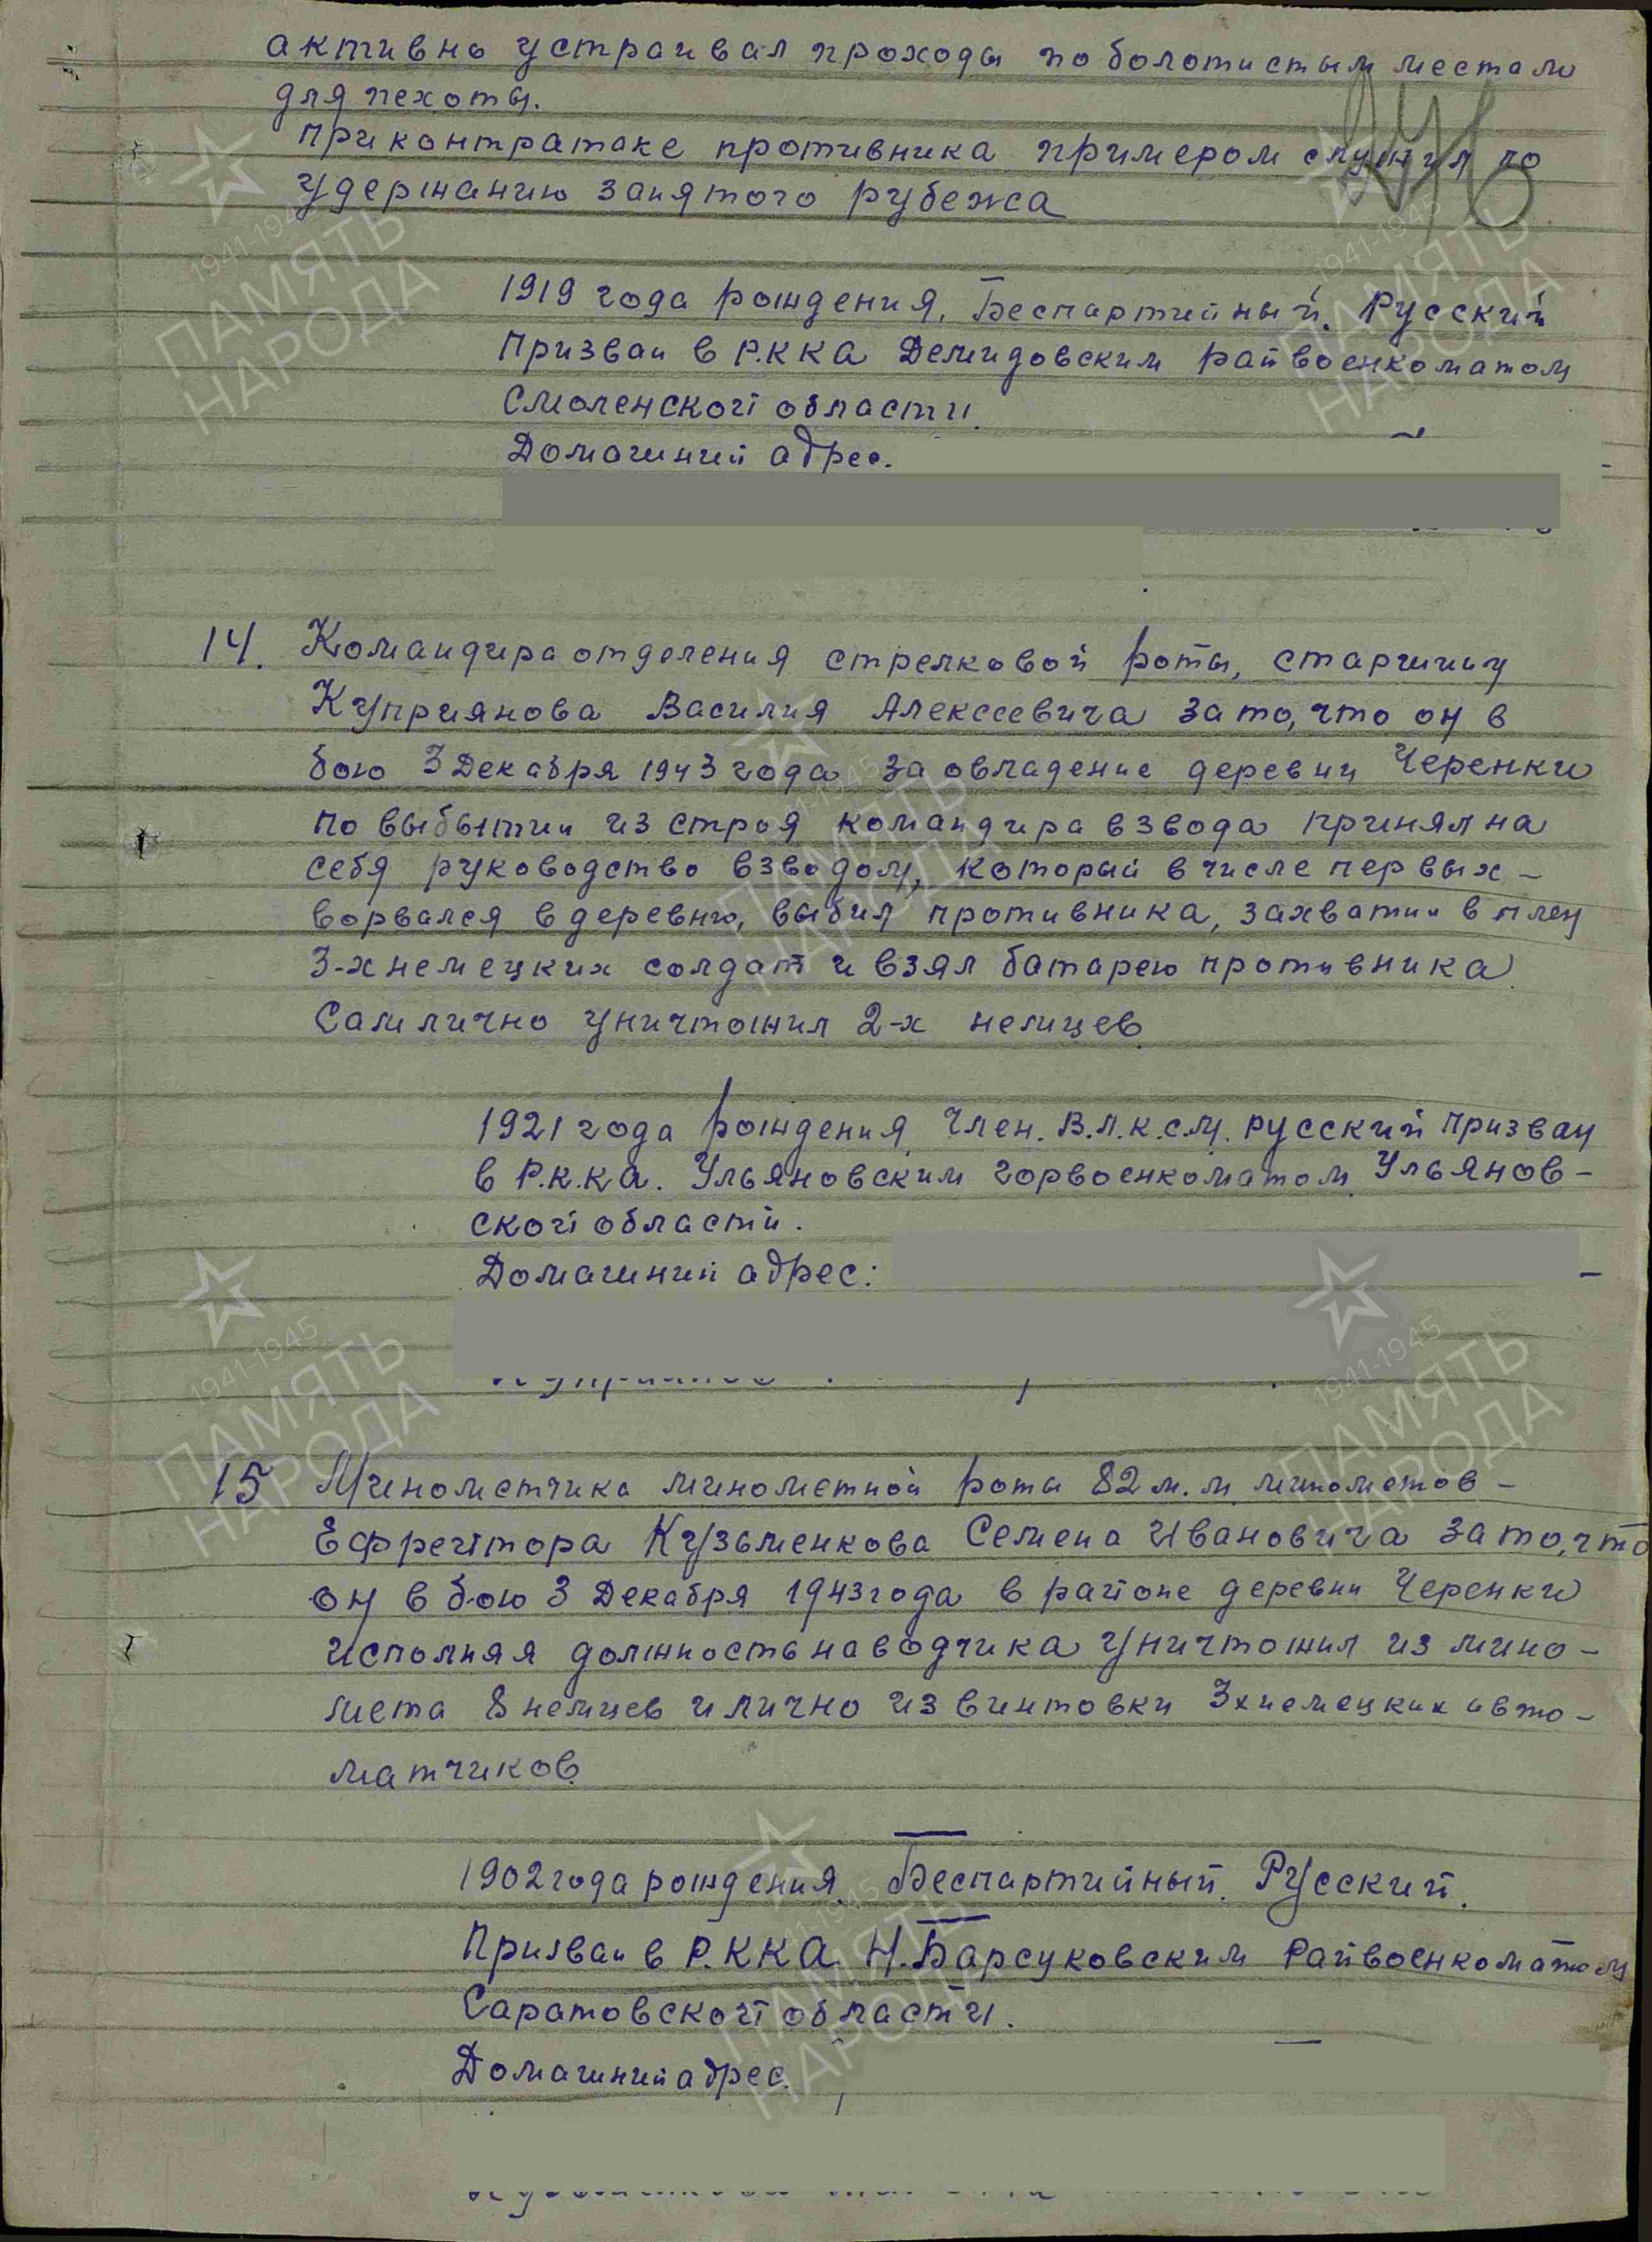 активно устраивал проходы по болотистым местам
для пехоты.
При контратаке противника примером служил по
удержанию занятого рубежа
1919 года рождения, Беспартийный. Русский
Призван в Р.ККА Демидовским райвоенкоматом
Смоленской области.
Домашний адрес.
14. Командира отделения стрелковой роты, старшину
Куприянова Василия Алексеевича за то, что он в
бою 3 Декабря 1943 года за овладение деревни Черенки
по выбытии из строя командира взвода принял на
себя руководство взводом, который в числе первых –
ворвался в деревню, выбил противника, захватил в плен
3-х немецких солдат и взял батарею противника.
Сам лично уничтожил 2-х немцев.
1921 года рождения, Член. В.Л.К.С.М. русский призван
в Р.К.КА. Ульяновским горвоенкоматом Ульянов–
ской области.
Домашний адрес:
15 Минометчика минометной роты 82 м.м. минометов –
Ефрейтора Кузьменкова Семена Ивановича за то, что
он в бою 3 Декабря 1943 года в районе деревни Черенки
исполняя должность наводчика уничтожил из мино–
мета 8 немцев и лично из винтовки 3х немецких авто–
матчиков.
1902 года рождения. Беспартийный. Русский.
Призван в Р.ККА Н.Барсуковским Райвоенкоматом
Саратовской области.
Домашний адрес.
1941-1945
ПАМЯТЬ
НАРОДА